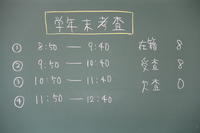 学年末考査
① 8:50 — 9:40 在籍 8
② 9:50 — 10:40 受査 8
③ 10:50 — 11:40 欠査 0
④ 11:50 — 12:40